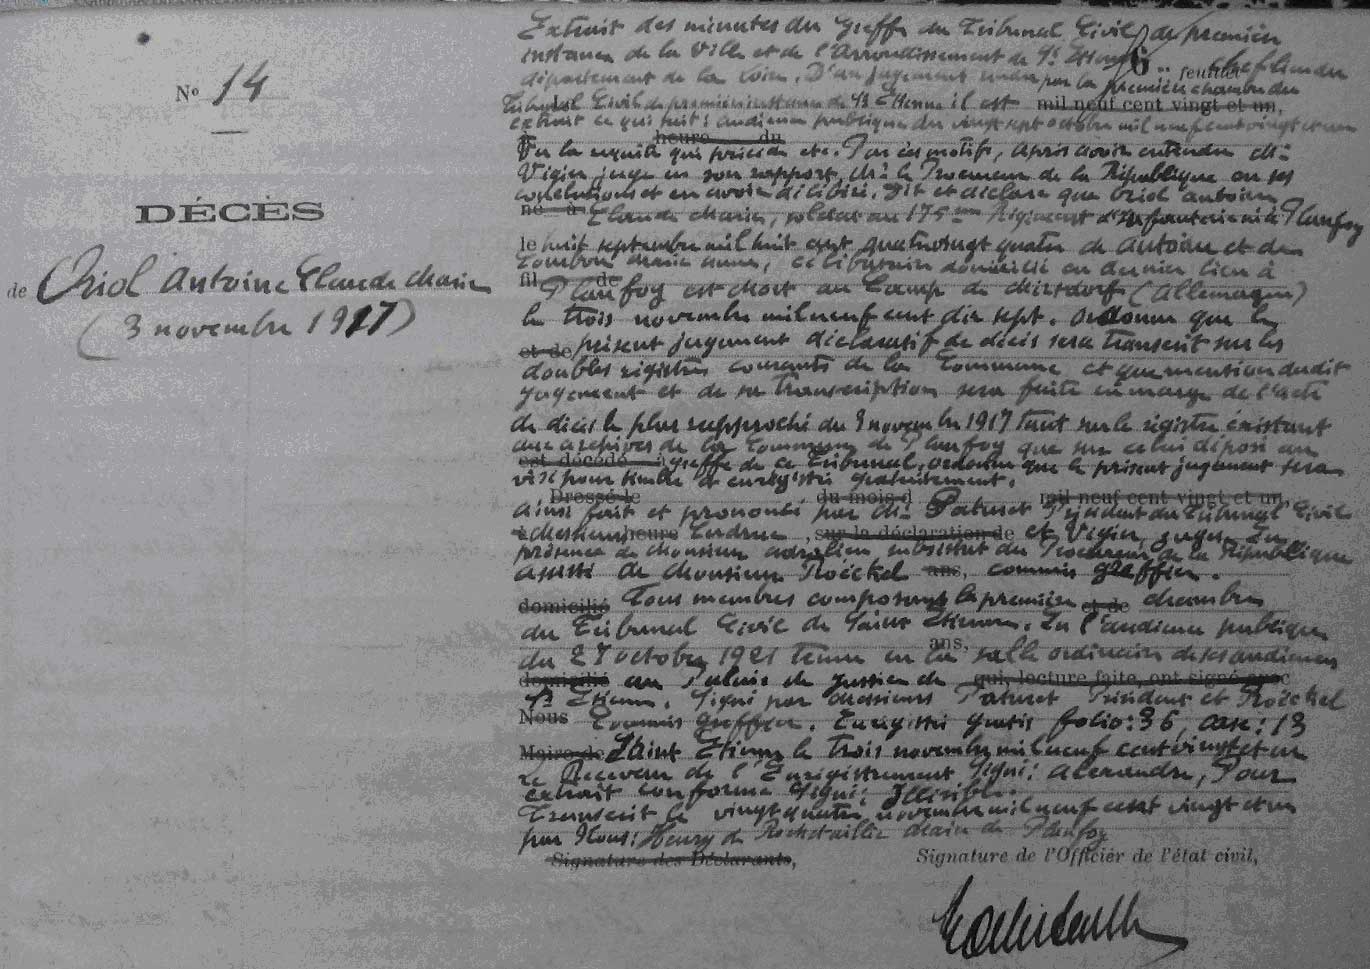 N° 14
DÉCÈS
de Oriol Antoine Claude Marie
(3 novembre 1917)
Extrait des minutes du Greffe du Tribunal Civil de première
instance de la Ville et de l'Arrondissement de St Etienne chef lieu du
6 feuillet
département de la Loire. D'un jugement rendu par la première chambre du
Tribunal Civil de première instance de St Etienne il est mil neuf cent vingt et un,
extrait ce qui suit: audience publique du vingt sept octobre mil neuf cent vingt et un
heure du
Vu la requête qui précède etc. Par ces motifs, après avoir entendu Mr
Vigier juge en son rapport, Mr le Procureur de la République en ses
conclusions et en avoir délibéré. Dit et déclare que Oriol Antoine
né à Claude Marie, soldat au 175me Régiment d'infanterie né à Planfoy
le huit septembre mil huit cent quatrevingt quatre de Antoine et de
Marie Anne, célibataire domicilié en dernier lieu à
fil de Planfoy est mort au Camp de (Allemagne)
le trois novembre mil neuf cent dix sept. Ordonne que le
et de présent jugement déclaratif de décès sera transcrit sur les
doubles registres courants de la Commune et que mention dudit
jugement et de sa transcription sera faite en marge de l'acte
de décès le plus rapproché du 3 novembre 1917 tant sur le registre existant
aux archives de la Commune de Planfoy que sur celui déposé au
est décédé greffe de ce Tribunal, ordonne que le présent jugement sera
visé pour timbre et enregistré gratuitement.
Dressé le du mois d mil neuf cent vingt et un,
Ainsi fait et prononcé par Mr Paturet Président du Tribunal Civil
à Messieurs heure sur la déclaration de et Vigier, juges. En
présence de Monsieur substitut du Procureur de la République
assisté de Monsieur Roëckel ans, commis greffier.
domicilié Tous membres composant la première et de chambre
du Tribunal Civil de Saint Etienne. En l'audience publique
ans,
du 27 octobre 1921 tenue en la salle ordinaire de ses audiences
domicilié au Palais de justice de qui, lecture faite, ont signé avec
St Etienne. Signé par Messieurs Paturet Président et Roëckel
Nous Commis Greffier. Enregistré gratis folio: 36, case: 13
Maire de Saint Etienne le trois novembre mil neuf cent vingt et un
Le Receveur de l'Enregistrement Signé: Alexandre, Pour
extrait conforme Signé: Illisible.
Transcrit le vingt quatre novembre mil neuf cent vingt et un
par Nous: Henry de Rochetaillée Maire de Planfoy
Signature des Déclarants, Signature de l'Officier de l'état civil,